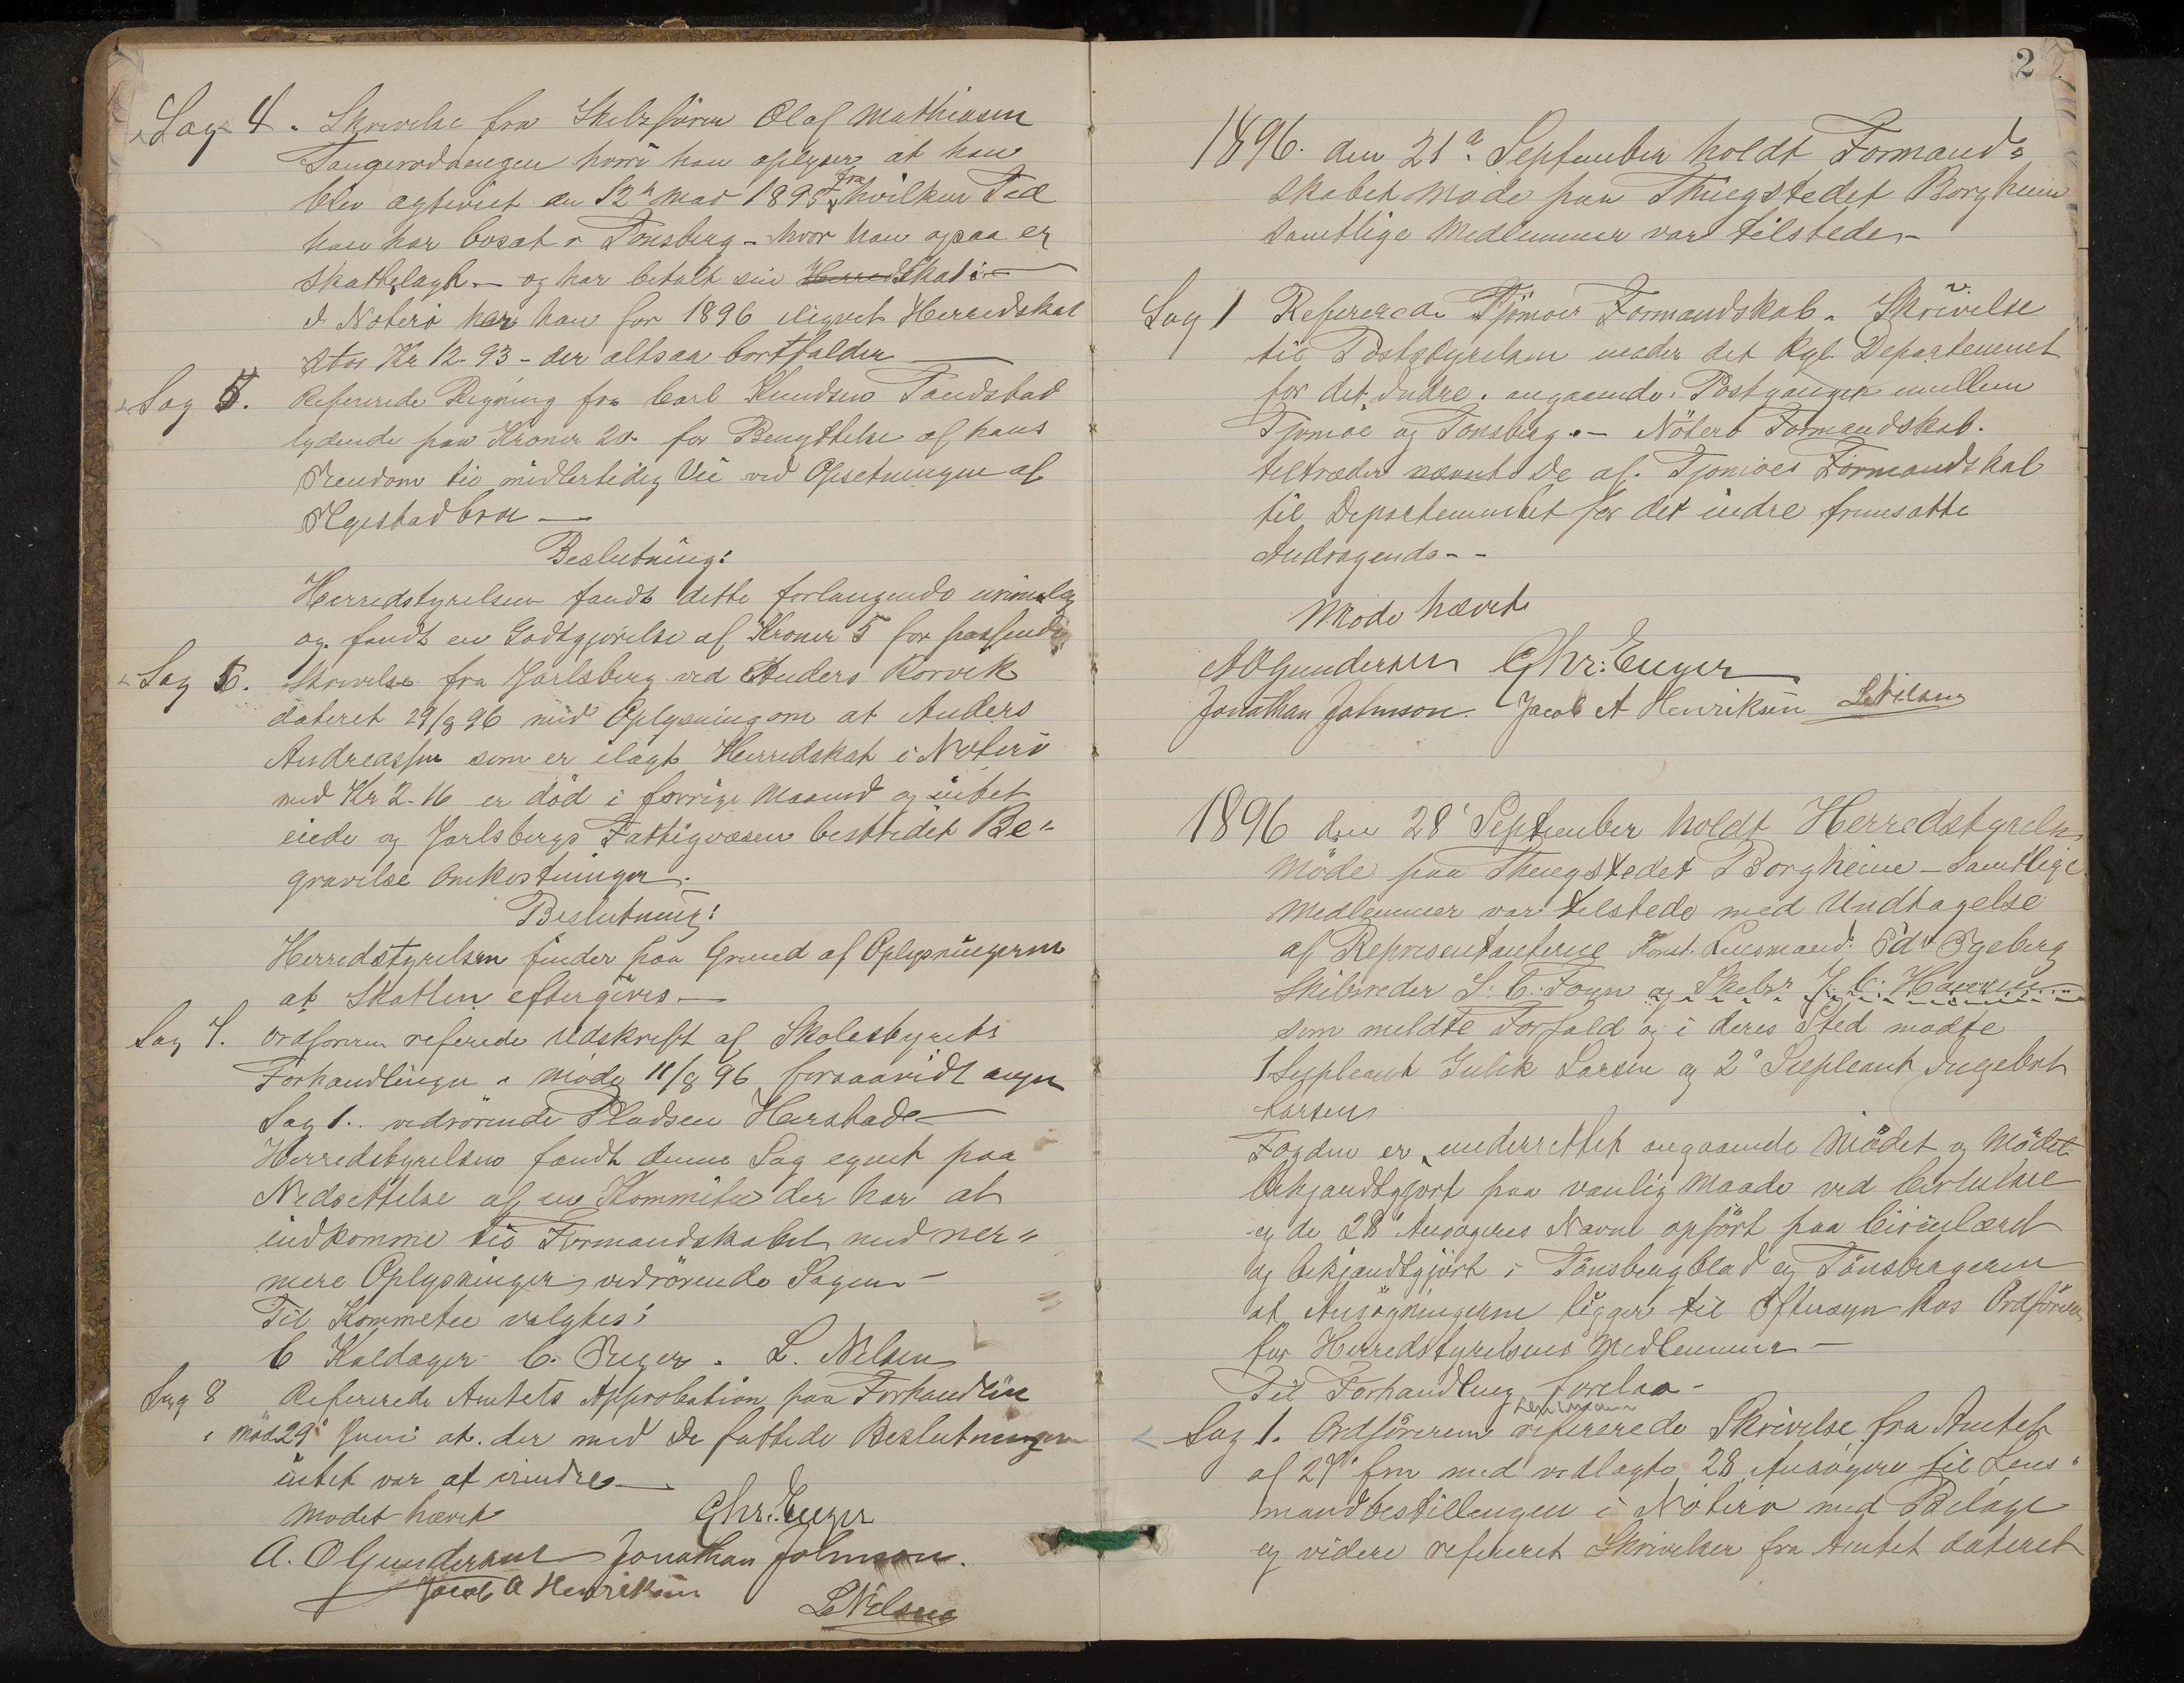 Sag 4. Skrivelse fra Skibsfører Olaf Mathiasen
hvori han oplyser at han
blev den 12te Mai 1895 fra hvilken Tid
han har bosat i Tønsberg - hvor han ogsaa er
skattelagt. - og har betalt sin Herredskat i
I Nøterø har han for 1896 ilignet Herredskat
stor Kr 12-93 - der altsaa bortfalder
Sag 5. Refererede Regning fra Carl Knudsen
lydende paa Kroner 20. for Benyttelse af hans
Eiendom til midlertidig Vei ved Opsetningen af
Beslutning:
Herredstyrelsen fandt dette forlangende urimelig
og fandt en Godtgjørelse af Kroner 5 for passende
Sag 6. Skrivelse fra Jarlsberg ved Anders Korvik
dateret 29/8 96 med Oplysning om at Anders
Andreassen som er ilagt Herredskat i Nøterø
med Kr 2-16 er død i forrige Maaned og intet
eiede og Jarlsbergs Fattigvæsen bestridet Be=
gravelse Omkostninger.
Beslutning:
Herredstyrelsen finder paa Grund af Oplysningerne
at Skatten eftergives. -
Sag 7. Ordføreren referede Udskrift af Skolestyrets
Forhandlinger i møde 11/8 96 forsaavidt angaar
Sag 1. vedrørende Pladsen Herstad -
Herredstyrelsen fandt denne Sag egnet paa
Nedsettelse af en Kommite der har at
indkomme til Formandskabet med ner=
mere Oplysninger vedrørende Sagen -
Til Kommetee valgtes:
C Kaldager C. Enger. L. Nilsen
Sag 8 Refererede Amtets Approbation paa Forhandlin
i Møde 29 Juni at der med de fattede Beslutninger
intet var at erindre -
Mødet hævet Chr. Enger
A. O Gundersen Jonathan Johnson.
Jacob A Henriksen
L Nilsen
2
1896. den 21de September holdt Formand=
skabet Møde paa Thingstedet Borgheim
samtlige Medlemmer var tilstede -
Sag 1 Refererede Tjømøes Formandskab. Skrivelse
til Poststyrelsen under det Kgl. Departement
for det Indre. angaaende. Postgangen mellem
Tjømøe og Tønsberg. - Nøterø Formandskab.
tiltræder nævnte de af. Tjømøes Formandskab
til Departementet for det indre fremsatte
Andragende - -
Møde hævet
A O Gundersen Chr: Enger
Jonathan Johnson. Jacob A Henriksen L Nilsen
1896 den 28' September holdt Herredstyrelsen
Møde paa Thingstedet Borgheim - Samtlige
Medlemmer var tilstede med Undtagelse
af Representanterne Konst. Lensmand: Edv Ygeberg
Skibsreder S. C. Foyn og Skibsr J. C.
som meldte Forfald og i deres Sted mødte
1 Supleant Gulik Larsen og 2' Supleant Ingebret
Larsen
Fogden er underrettet angaaende Mødet og Mødet
bekjendtgjort paa vanlig Maade ved Cirkulære
og de 28' Ansøgeres Navne opført paa Cirkulæret
og bekjendtgjørt i Tønsbergblad og Tønsbergeren
at Ansøgningerne ligger til Eftersyn hos Ordføreren
for Herredstyrelsens Medlemmer -
Til Forhandling forelaa -
Lensmann
Sag 1. Ordføreren refererede Skrivelse fra Amtet
af 27' med vedlagte 28 Ansøgere til Lens=
mandbestillingen i Nøterø med Bilage
og videre refereret Skrivelser fra Amtet dateret